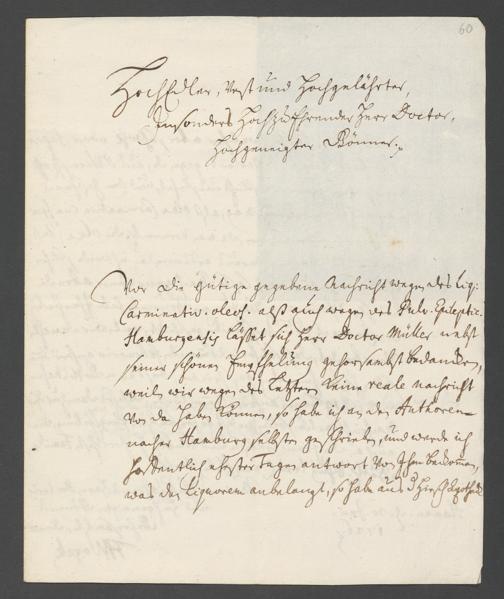 60
HochEdler, Vest und Hochgelährter,
Insonders Hochzuehrender Herr Doctor,
Hochgeneigter Gönner.
Vor die gütige gegebene Nachricht wegen des Liq:
Carminativ. oleos. alß auch wegen des Pulv. Epileptic.
Hamburgensis lässet sich Herr Doctor Müller nebst
seiner schönen Empfehlung gehorsambst bedancken,
weil wir wegen des Letztern keine reale nachricht
von da haben können, so habe ich an den Authorem
nacher Hamburg selbsten geschrieben, und werde ich
hoffentlich ehester Tagen antwort von Ihm bekommen,
was den Liquorem anbelangt, so habe aus d Hirsch Apotheke